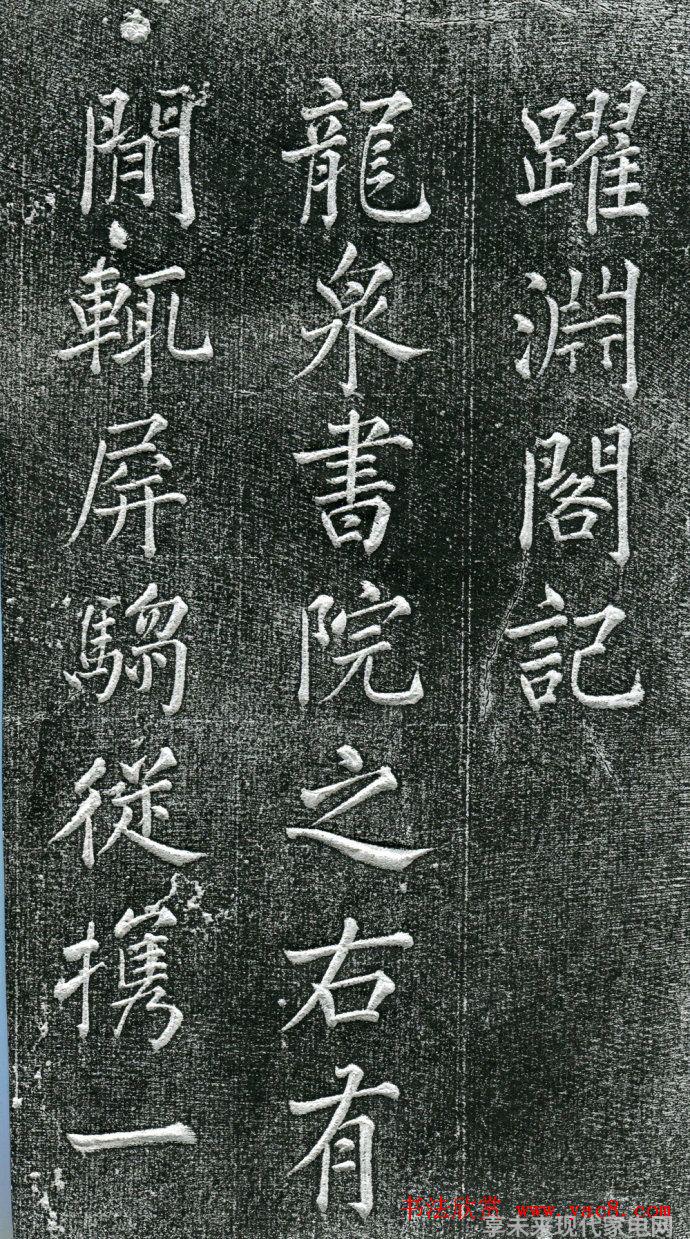 躍淵閣記
龍泉書院之右有
閒輒屏騶從携一
书法欣赏 www.yac8.com
享未来现代家电网